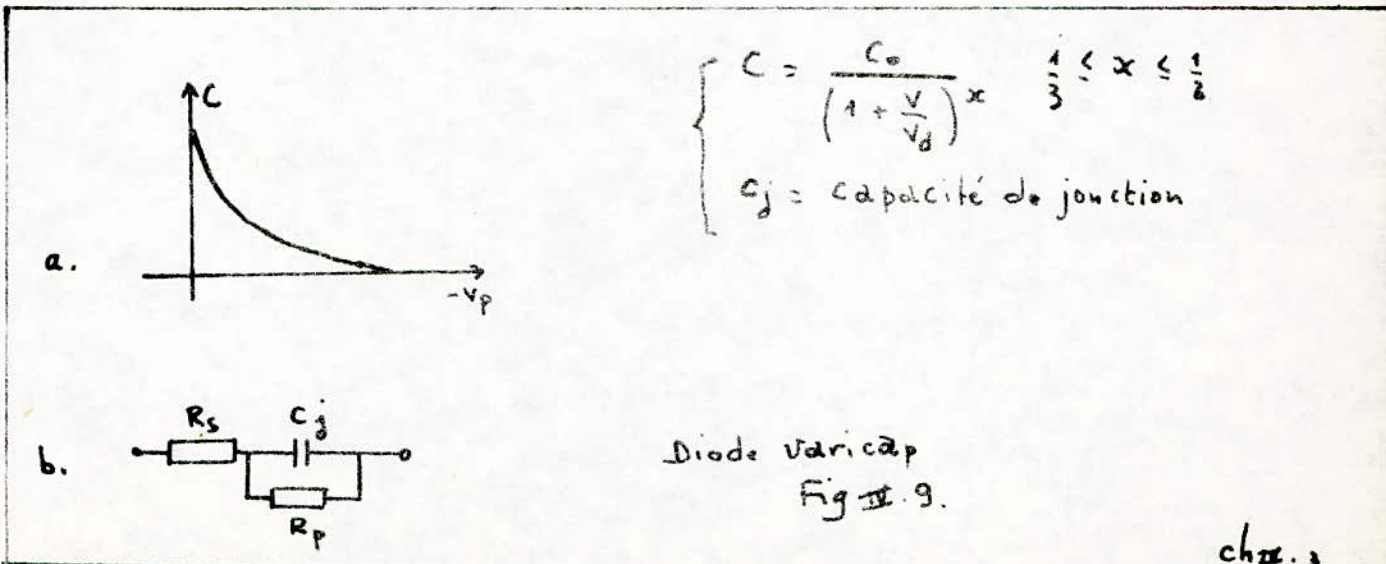 C
C = C₀ / (1 + V/V_d)^x   1/3 ≤ x ≤ 1/2
C_j = capacité de jonction
a.
-V_p
b.
R_s
C_j
R_p
Diode varicap
Fig IV.9.